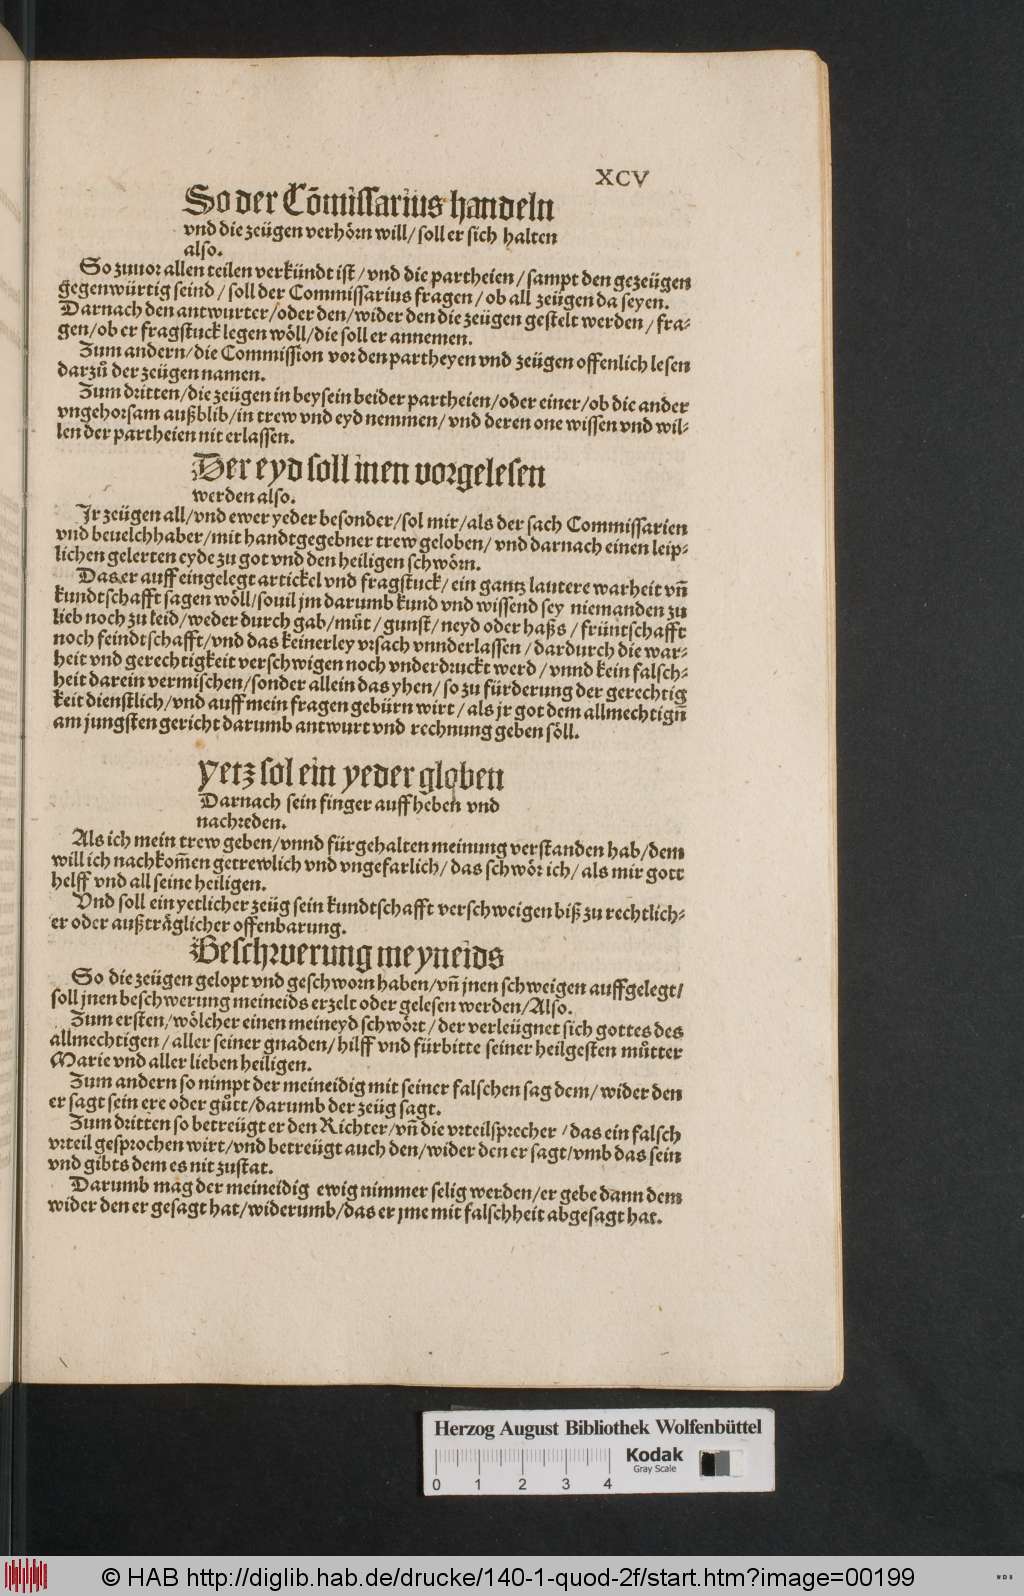 XCV
So der Cōmissarius handeln
vnd die zeügen verhörn will/ soll er sich halten
also.
So zuuor allen teilen verkündt ist/ vnd die partheien/ sampt den gezeügen
gegenwürtig seind/ soll der Commissarius fragen/ ob all zeügen da seyen.
Darnach den antwurter/oder den/wider den die zeügen gestelt werden/ fra-
gen/ob er fragstuck legen wöll/die soll er annemen.
Zum andern/die Commission vor den partheyen vnd zeügen offenlich lesen
darzů der zeügen namen.
Zum dritten/die zeügen in beysein beider partheien/oder einer/ob die ander
vngehorsam außblib/in trew vnd eyd nemmen/ vnd deren one wissen vnd wil-
len der partheien nit erlassen.
Der eyd soll inen vorgelesen
werden also.
Jr zeügen all/vnd ewer yeder besonder/sol mir/als der sach Commissarien
vnd beuelchhaber/mit handtgegebner trew geloben/ vnd darnach einen leip-
lichen gelerten eyde zu got vnd den heiligen schwörn.
Das er auff eingelegt artickel vnd fragstuck/ ein gantz lautere warheit vn̄
kundtschafft sagen wöll/souil jm darumb kund vnd wissend sey niemanden zu
lieb noch zu leid/weder durch gab/můt/ gunst/neyd oder haßs/früntschafft
noch feindtschafft/vnd das keinerley vrsach vnnderlassen/dardurch die war-
heit vnd gerechtigkeit verschwigen noch vnderdruckt werd/vnnd kein falsch-
heit darein vermischen/sonder allein das yhen/so zu fürderung der gerechtig
keit dienstlich/vnd auff mein fragen gebürn wirt/als jr got dem allmechtign̄
am jungsten gericht darumb antwurt vnd rechnung geben söll.
Yetz sol ein yeder globen
Darnach sein finger auff heben vnd
nachreden.
Als ich mein trew geben/vnnd fürgehalten meinung verstanden hab/dem
will ich nachkom̄en getrewlich vnd vngefarlich/das schwör ich/als mir gott
helff vnd all seine heiligen.
Vnd soll ein yetlicher zeüg sein kundtschafft verschweigen biß zu rechtlich-
er oder außträglicher offenbarung.
Beschwerung meyneids
So die zeügen gelopt vnd geschworn haben/vn̄ jnen schweigen auffgelegt/
soll jnen beschwerung meineids erzelt oder gelesen werden/Also.
Zum ersten/wölcher einen meineyd schwört/der verleügnet sich gottes des
allmechtigen/aller seiner gnaden/hilff vnd fürbitte seiner heilgesten můtter
Marie vnd aller lieben heiligen.
Zum andern so nimpt der meineidig mit seiner falschen sag dem/wider den
er sagt sein ere oder gůtt/darumb der zeüg sagt.
Zum dritten so betreügt er den Richter/vn̄ die vrteilsprecher/das ein falsch
vrteil gesprochen wirt/vnd betreügt auch den/wider den er sagt/vmb das sein
vnd gibts dem es nit zustat.
Darumb mag der meineidig ewig nimmer selig werden/er gebe dann dem
wider den er gesagt hat/widerumb/das er jme mit falschheit abgesagt hat.
Herzog August Bibliothek Wolfenbüttel
Kodak
Gray Scale
0 1 2 3 4
© HAB http://diglib.hab.de/drucke/140-1-quod-2f/start.htm?image=00199